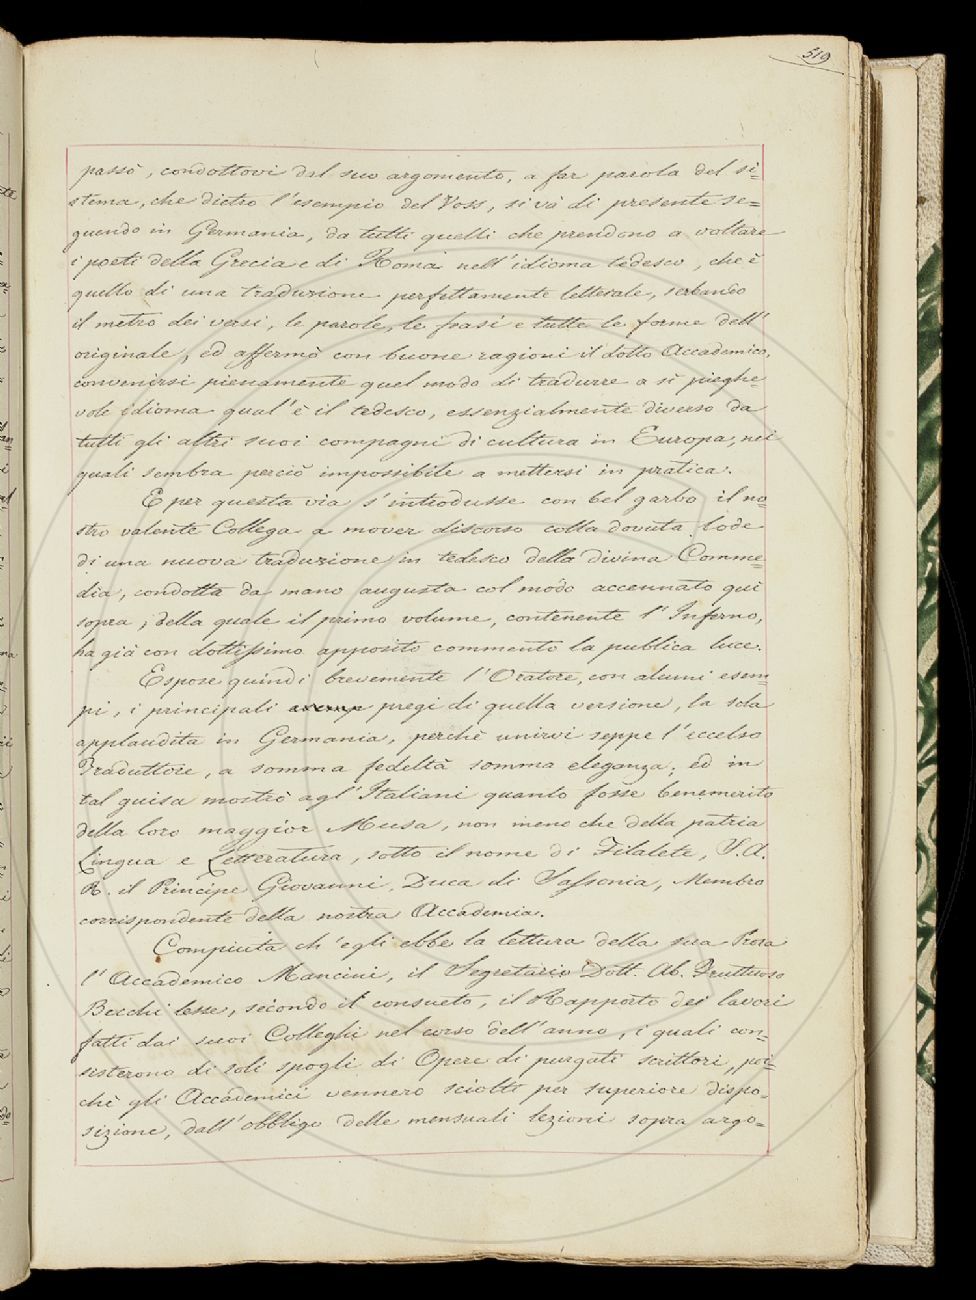 519
passò, condottovi dal suo argomento, a far parola del si=
stema, che dietro l'esempio del Voss, si và di presente se=
guendo in Germania, da tutti quelli che prendono a voltare
i poeti della Grecia e di Roma nell'idioma tedesco, che è
quello di una traduzione perfettamente letterale, serbando
il metro dei versi, le parole, le frasi e tutte le forme dell'
originale, ed affermò con buone ragioni il dotto Accademico,
convenirsi pienamente quel modo di tradurre a sì pieghe=
vole idioma qual'è il tedesco, essenzialmente diverso da
tutti gli altri suoi compagni di cultura in Europa, nei
quali sembra perciò impossibile a mettersi in pratica.
E per questa via s'introdusse con bel garbo il no=
stro valente Collega a mover discorso colla dovuta lode
di una nuova traduzione in tedesco della divina Comme=
dia, condotta da mano augusta col modo accennato qui
sopra, della quale il primo volume, contenente l'Inferno,
ha già con dottissimo apposito commento la pubblica luce.
Espose quindi brevemente l'Oratore, con alcuni esem=
pi, i principali pregi di quella versione, la sola
applaudita in Germania, perchè unirvi seppe l'eccelso
Traduttore, a somma fedeltà somma eleganza; ed in
tal guisa mostrò agl'Italiani quanto fosse benemerito
della loro maggior Musa, non meno che della patria
Lingua e Letteratura, sotto il nome di Filalete, S. A.
R. il Principe Giovanni, Duca di Sassonia, Membro
corrispondente della nostra Accademia.
Compiuta ch'egli ebbe la lettura della sua Prosa
l'Accademico Mancini, il Segretario Dott. Ab. Fruttuoso
Becchi lesse, secondo il consueto, il Rapporto dei lavori
fatti dai suoi Colleghi nel corso dell'anno, i quali con=
sisterono di soli spogli di Opere di purgati scrittori, poi=
chè gli Accademici vennero sciolti per superiore dispo=
sizione, dall'obbligo delle mensuali lezioni sopra argo=